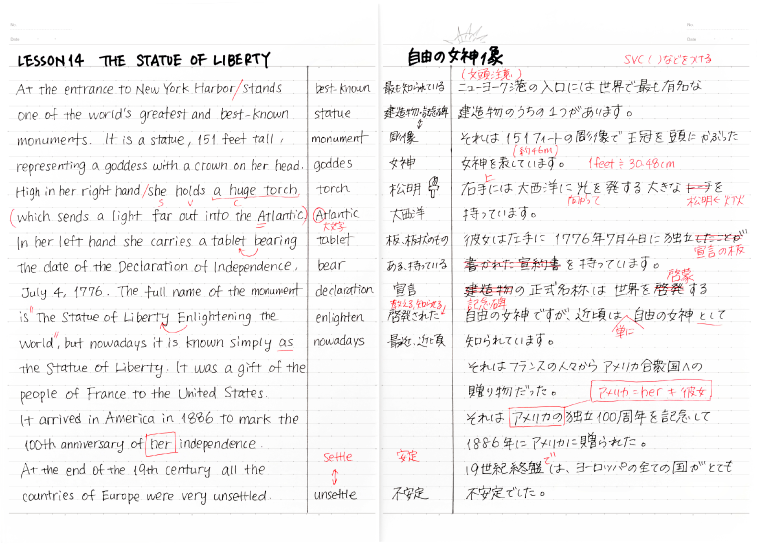 LESSON 14 THE STATUE OF LIBERTY
At the entrance to New York Harbor/stands
one of the world's greatest and best-known
monuments. It is a statue, 151 feet tall,
representing a goddess with a crown on her head.
High in her right hand/she holds a huge torch,
S V C
(which sends a light far out into the Atlantic.)
In her left hand she carries a tablet bearing
the date of the Declaration of Independence,
July 4, 1776. The full name of the monument
is "The Statue of Liberty Enlightening the
World", but nowadays it is known simply as
the Statue of Liberty. It was a gift of the
people of France to the United States.
It arrived in America in 1886 to mark the
100th anniversary of her independence.
At the end of the 19th century all the
countries of Europe were very unsettled.
best-known
statue
monument
goddes
torch
Atlantic
大文字
tablet
bear
declaration
enlighten
nowadays
settle
unsettle
自由の女神像
最も知られている
建造物・記念碑
彫像
女神
松明
大西洋
板、板状のもの
ある、持っている
宣言
教える、知らせる
啓発された
最近、近頃
安定
不安定
SVC( )などをつける
(文頭注意)
ニューヨーク港の入口には世界で最も有名な
建造物のうちの1つがあります。
それは151フィートの彫像で王冠を頭にかぶった
(約46m)
女神を表しています。 1feet≒30.48cm
右手には大西洋に光を発する大きなトーチを
松明
持っています。
彼女は左手に1776年7月4日に独立したことが
宣言の板
書かれた宣約書を持っています。
啓蒙
建造物の正式名称は世界を啓発する
記念碑
自由の女神ですが、近頃は自由の女神として
単に
知られています。
それはフランスの人々からアメリカ合衆国への
贈り物だった。
アメリカ=her≠彼女
それはアメリカの独立100周年を記念して
1886年にアメリカに贈られた。
19世紀終盤では、ヨーロッパの全ての国がとても
不安定でした。